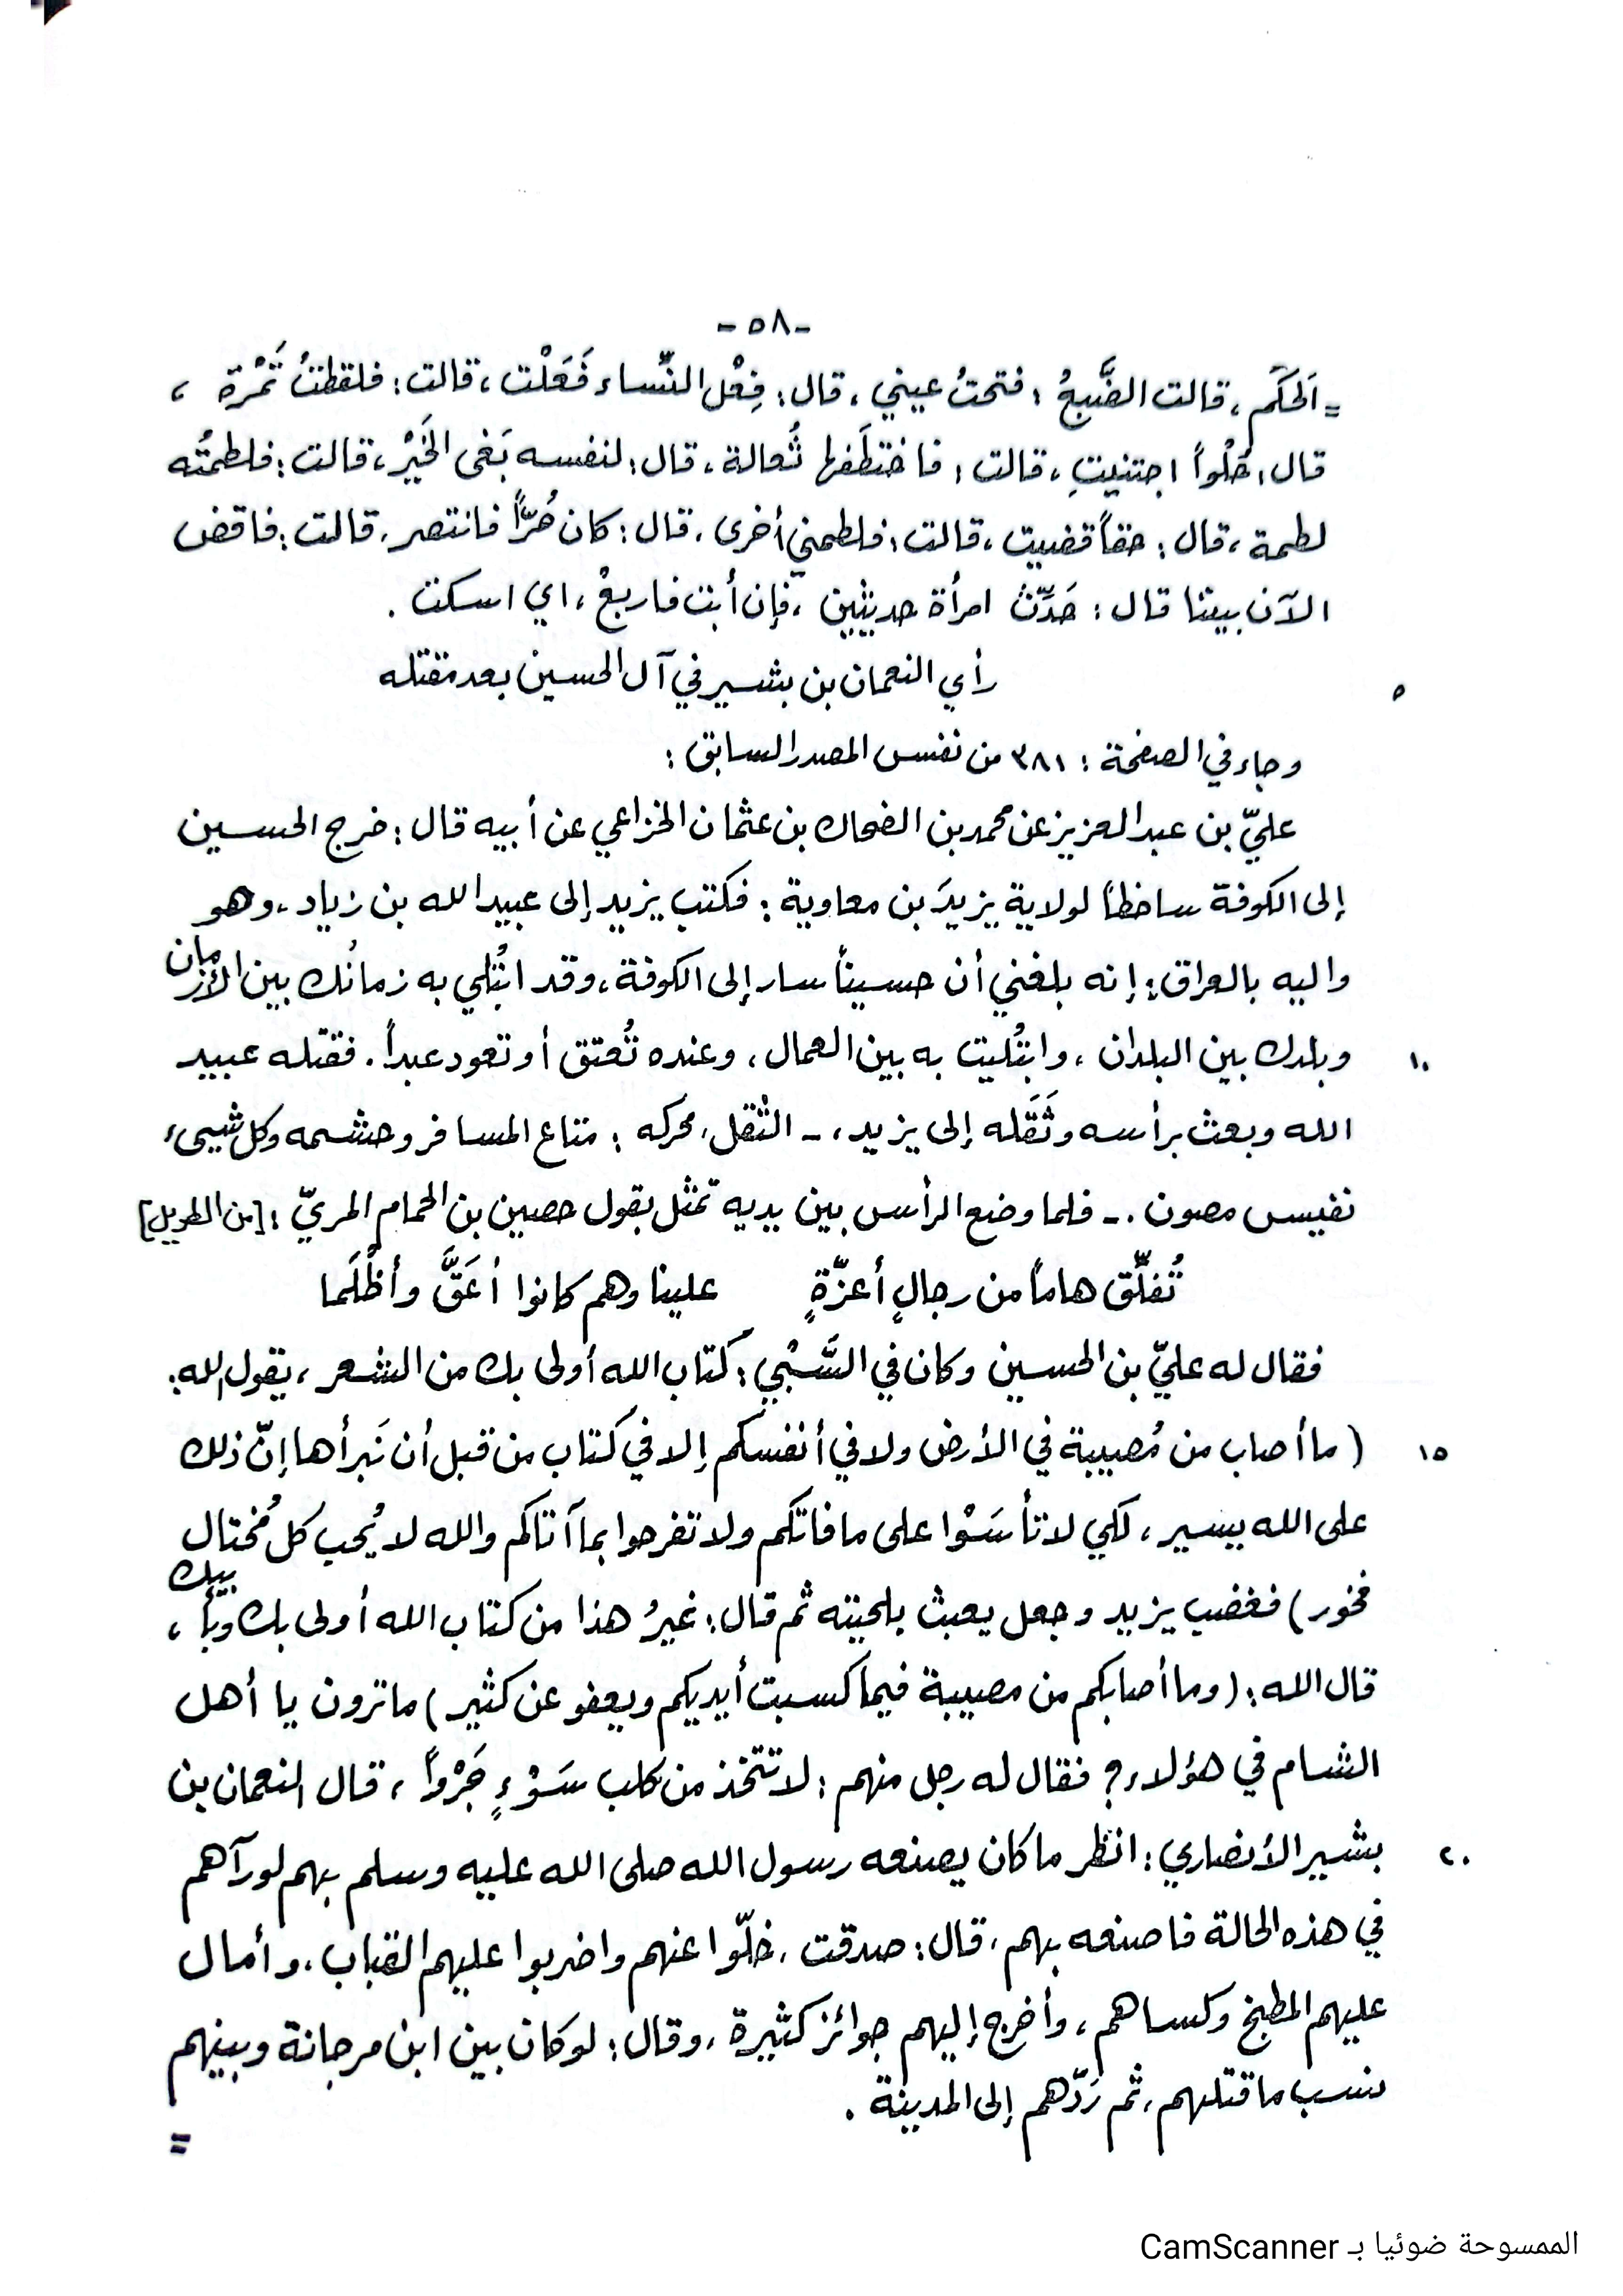 -٥٨-
=اَلحَكَم، قالت الضَّبعُ: فتحتُ عيني، قال: فِعْل النِّساء فَعَلْت، قالت: فلقطتُ تَمْرة،
قال: حُلْواً اجتنيتِ، قالت: فاختطَفها ثُعالة، قال: لنفسه بَغى الخَيْر، قالت: فلطمتُه
لطمة، قال: حقاً قضيت، قالت: فلطمني أخرى، قال: كان حُرّاً فانتصر، قالت: فاقض
الآن بيننا قال: حَدِّث امرأة حديثين، فإن أبت فاربعْ، اي اسكت.
٥ رأي النعمان بن بشير في آل الحسين بعد مقتله
وجاء في الصفحة: ٣٨١ من نفس المصدر السابق:
عليّ بن عبد العزيز عن محمد بن الضحاك بن عثمان الخزاعي عن أبيه قال: خرج الحسين
إلى الكوفة ساخطاً لولاية يزيدَ بن معاوية: فكتب يزيد إلى عبيد الله بن زياد، وهو
واليه بالعراق: إنه بلغني أن حسيناً سار إلى الكوفة، وقد ابتُلي به زمانُك بين الأزمان
١٠ وبلدك بين البلدان، وابتُليت به بين العمال، وعنده تُعتق أو تعود عبداً. فقتله عبيد
الله وبعث برأسه وثَقَله إلى يزيد، - الثَّقل، محركه: متاع المسافر وحشمه وكل شيىء
نفيس مصون. - فلما وضع الرأس بين يديه تمثّل بقول حصين بن الحمام المريّ: [من الطويل]
تُفلِّق هاماً من رجالٍ أعزّةٍ علينا وهم كانوا أعَقَّ وأظْلَما
فقال له عليّ بن الحسين وكان في السَّبْي: كتاب الله أولى بك من الشعر، يقول الله:
١٥ (ما أصاب من مُصيبة في الأرض ولا في أنفسكم إلا في كتاب من قبل أن نَبرأها إنّ ذلك
على الله يسير، لكي لا تأسَوْا على ما فاتكم ولا تفرحوا بما آتاكم والله لا يُحب كل مُختال
فخور) فغضب يزيد وجعل يعبث بلحيته ثم قال: غيرُ هذا من كتاب الله أولى بك وبأبيك،
قال الله: (وما أصابكم من مصيبة فيما كسبت أيديكم ويعفو عن كثير) ما ترون يا أهل
الشام في هؤلاء؟ فقال له رجل منهم: لا تتخذ من كلب سَوْءٍ جَرْواً، قال النعمان بن
٢٠ بشير الأنصاري: انظر ما كان يصنعه رسول الله صلى الله عليه وسلم بهم لو رآهم
في هذه الحالة فاصنعه بهم، قال: صدقت، خلّوا عنهم واضربوا عليهم القباب، وأمال
عليهم المطبخ وكساهم، وأخرج إليهم جوائز كثيرة، وقال: لو كان بين ابن مرجانة وبينهم
نسب ما قتلهم، ثم رَدّهم إلى المدينة.
=
الممسوحة ضوئيا بـ CamScanner